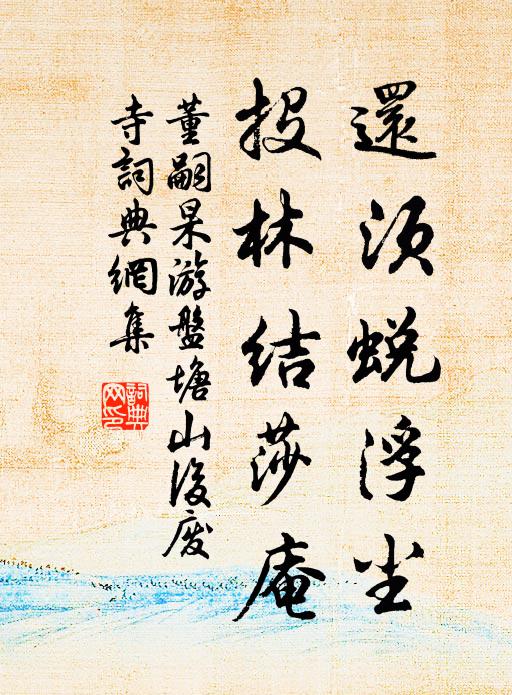 還須蛻浮尘
投林結莎庵
董嗣杲游盤塘山後废
寺詞典網集
詞典
网印